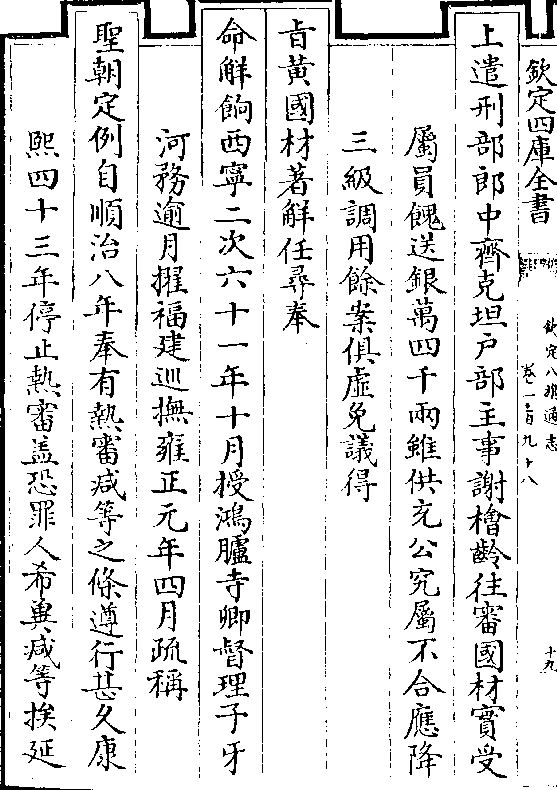 欽定四庫全書
欽定八旗通志
卷一百九十八
十九
上遣刑部郎中齊克坦戶部主事謝檜齡往審國材實受
屬員餽送銀萬四千兩雖供充公究屬不合應降
三級調用餘案俱虛免議得
旨黃國材著解任尋奉
命解餉西寧二次六十一年十月授鴻臚寺卿督理子牙
河務逾月擢福建巡撫雍正元年四月疏稱
聖朝定例自順治八年奉有熱審减等之條遵行甚久康
熙四十三年停止熱審盖恐罪人希兾减等挨延